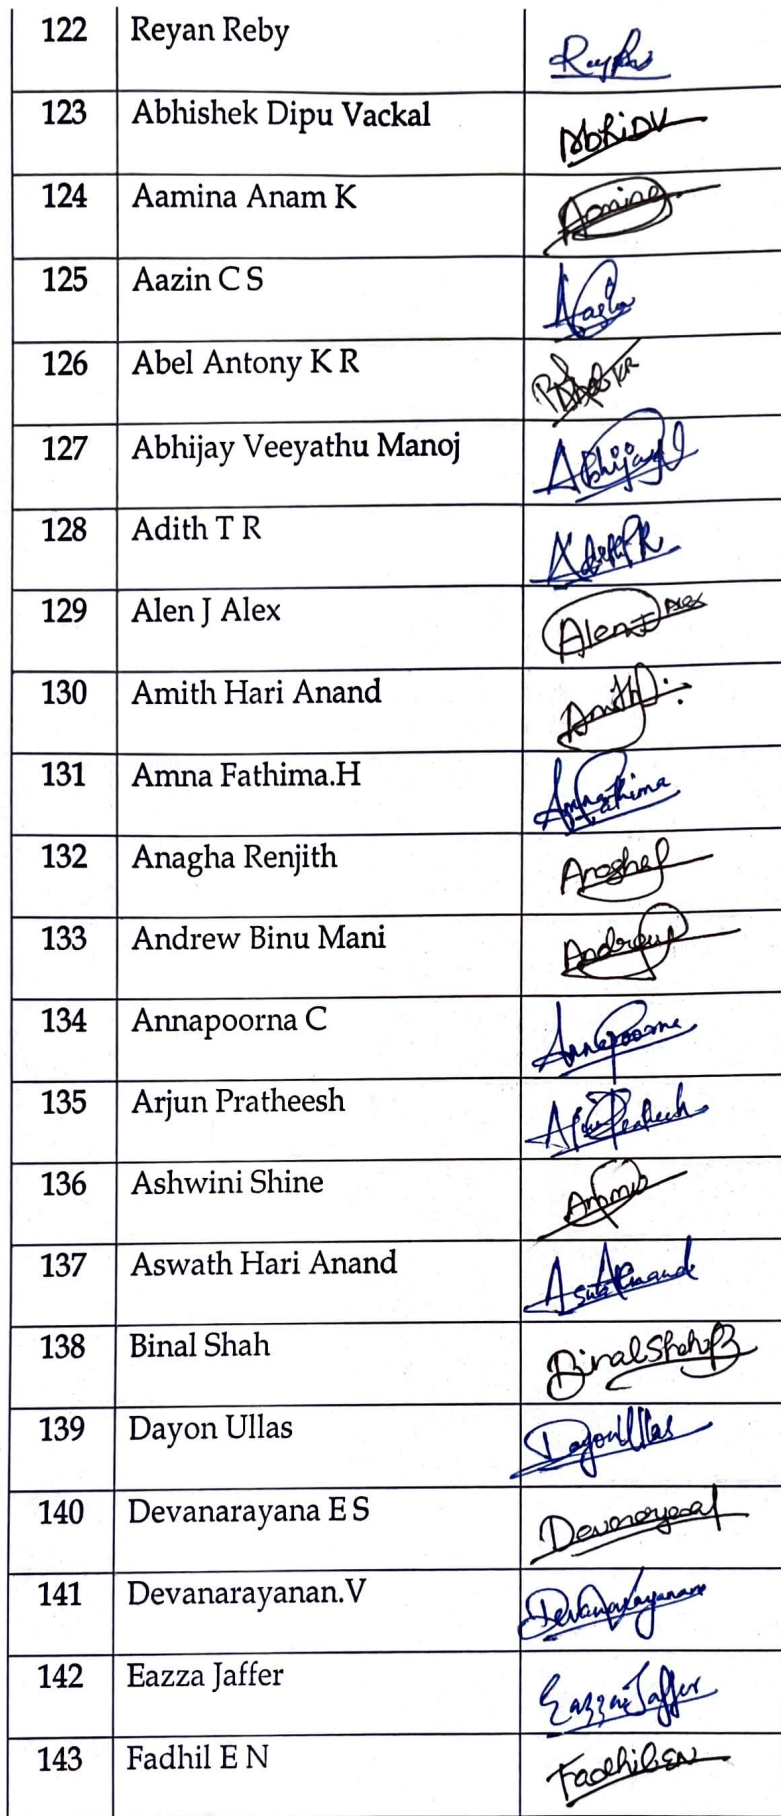 122 Reyan Reby
123 Abhishek Dipu Vackal AbhiDV
124 Aamina Anam K Aamina
125 Aazin C S Aazin
126 Abel Antony K R
127 Abhijay Veeyathu Manoj Abhijay
128 Adith T R
129 Alen J Alex Alen J Alex
130 Amith Hari Anand Amith
131 Amna Fathima.H
132 Anagha Renjith Anagha
133 Andrew Binu Mani Andrew
134 Annapoorna C Annapoorna
135 Arjun Pratheesh
136 Ashwini Shine
137 Aswath Hari Anand
138 Binal Shah Binal Shah
139 Dayon Ullas Dayon Ullas
140 Devanarayana E S
141 Devanarayanan.V Devanarayanan
142 Eazza Jaffer Eazza Jaffer
143 Fadhil E N Fadhil EN